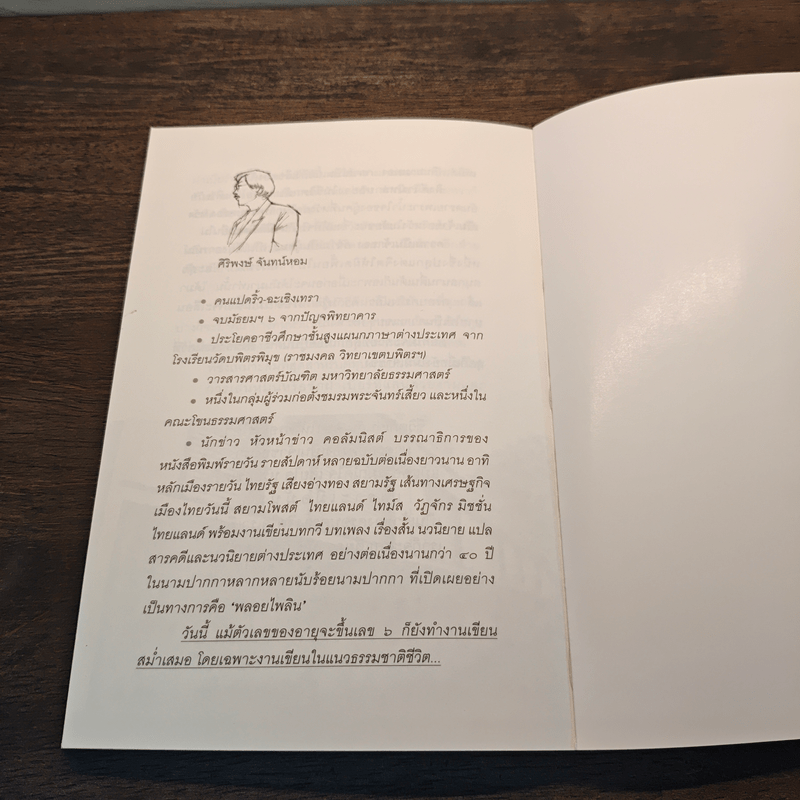 ศิริพงษ์ จันทน์หอม
● คนแปดริ้ว-ฉะเชิงเทรา
● จบมัธยมฯ ๖ จากปัญจพิทยาคาร
● ประโยคอาชีวศึกษาชั้นสูงแผนกภาษาต่างประเทศ จาก
โรงเรียนวัดบพิตรพิมุข (ราชมงคล วิทยาเขตบพิตรฯ)
● วารสารศาสตร์บัณฑิต มหาวิทยาลัยธรรมศาสตร์
● หนึ่งในกลุ่มผู้ร่วมก่อตั้งชมรมพระจันทร์เสี้ยว และหนึ่งใน
คณะโขนธรรมศาสตร์
● นักข่าว หัวหน้าข่าว คอลัมนิสต์ บรรณาธิการของ
หนังสือพิมพ์รายวัน รายสัปดาห์ หลายฉบับต่อเนื่องยาวนาน อาทิ
หลักเมืองรายวัน ไทยรัฐ เสียงอ่างทอง สยามรัฐ เส้นทางเศรษฐกิจ
เมืองไทยวันนี้ สยามโพสต์ ไทยแลนด์ ไทม์ส วัฏจักร มิชชั่น
ไทยแลนด์ พร้อมงานเขียนบทกวี บทเพลง เรื่องสั้น นวนิยาย แปล
สารคดีและนวนิยายต่างประเทศ อย่างต่อเนื่องนานกว่า ๔๐ ปี
ในนามปากกาหลากหลายนับร้อยนามปากกา ที่เปิดเผยอย่าง
เป็นทางการคือ ‘พลอยไพลิน’
วันนี้ แม้ตัวเลขของอายุจะขึ้นเลข ๖ ก็ยังทำงานเขียน
สม่ำเสมอ โดยเฉพาะงานเขียนในแนวธรรมชาติชีวิต...